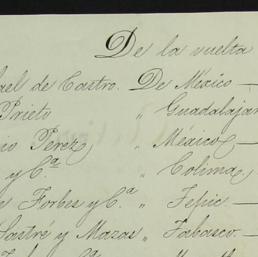 De la vuelta
ael de Castro. De México —
Prieto " Guadalajar
io Perez " México —
y Cª " Colima —
e Forbes y Cª " Tepic —
Sastré y Mazas " Tabasco —